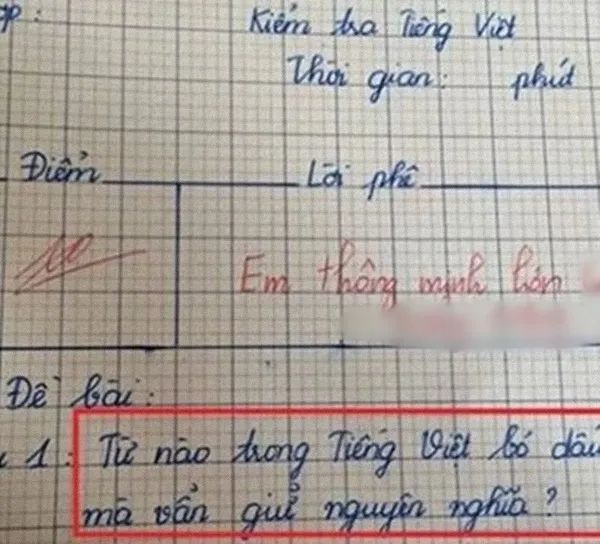 Kiểm tra Tiếng Việt
Thời gian: phút
Điểm
Lời phê
10
Em thông minh hơn
Đề bài:
1: Từ nào trong Tiếng Việt bỏ dấu
mà vẫn giữ nguyên nghĩa?